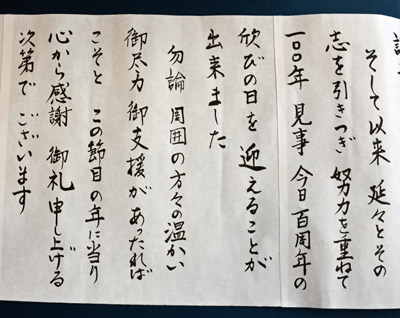 そして以来 延々とその
志を引きつぎ 努力を重ねて
一〇〇年 見事 今日百周年の
欣びの日を 迎えることが
出来ました
勿論 周囲の方々の温かい
御尽力 御支援があったれば
こそと この節目の年に当り
心から感謝 御礼申し上げる
次第で ございます